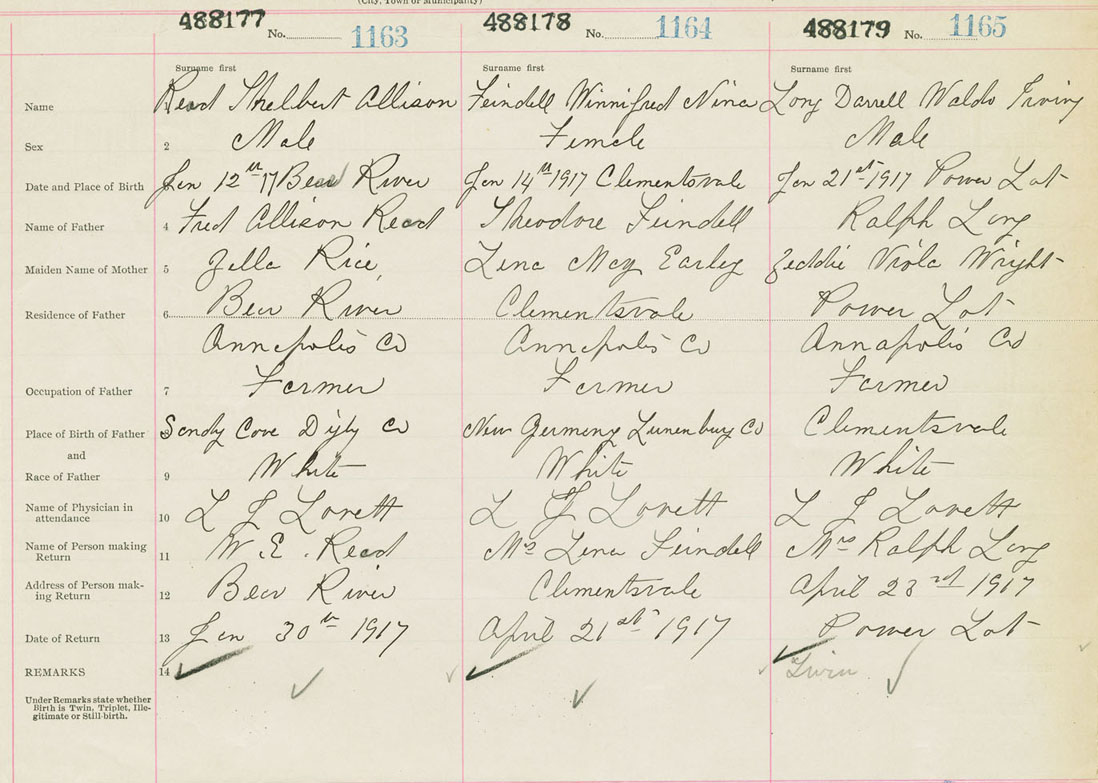 (City, Town or Municipality)
488177 No. 1163 488178 No. 1164 488179 No. 1165
Surname first Surname first Surname first
Name Read Shelbert Allison Feindell Winnifred Nina Long Darrell Waldo Irving
Sex 2 Male Female Male
Date and Place of Birth Jan 12th 17 Bear River Jan 14th 1917 Clementsvale Jan 21st 1917 Power Lot
Name of Father 4 Fred Allison Read Theodore Feindell Ralph Long
Maiden Name of Mother 5 Zella Rice Lena May Earley Viola Wright
Residence of Father 6 Bear River Clementsvale Power Lot
Annapolis Co Annapolis Co Annapolis Co
Occupation of Father 7 Farmer Farmer Farmer
Place of Birth of Father Sandy Cove Digby Co New Germany Lunenburg Co Clementsvale
and
Race of Father 9 White White White
Name of Physician in
attendance 10 L J Lovett L J Lovett L J Lovett
Name of Person making
Return 11 W. E. Read Mrs Lena Feindell Mrs Ralph Long
Address of Person mak-
ing Return 12 Bear River Clementsvale April 23rd 1917
Date of Return 13 Jan 30th 1917 April 21st 1917 Power Lot
REMARKS 14 Twin
Under Remarks state whether
Birth is Twin, Triplet, Ille-
gitimate or Still-birth.